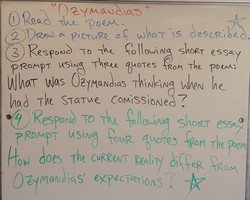 "Ozymandias"
① Read the poem.
② Draw a picture of what is described.
③ Respond to the following short essay
prompt using three quotes from the poem:
What was Ozymandias thinking when he
had the statue comissioned?
④ Respond to the following short essay
prompt using four quotes from the poem:
How does the current reality differ from
Ozymandias' expectations?